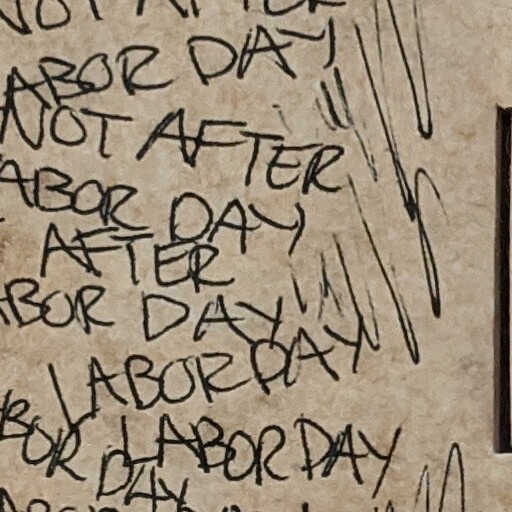 NOT AFTER
LABOR DAY
NOT AFTER
LABOR DAY
AFTER
LABOR DAY
LABOR DAY
LABOR LABOR DAY
DAY